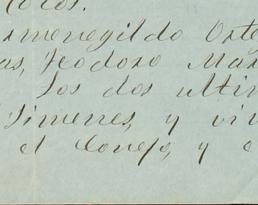 ermenegildo Orte
as, Teodoro Mar
Los dos ultim
Jimenes, y viv
el Conejo, y